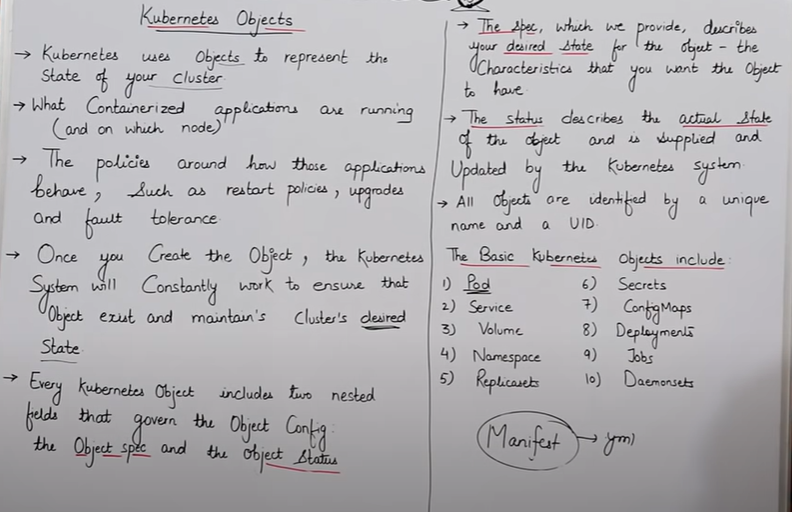 Kubernetes Objects
→ Kubernetes uses Objects to represent the
State of your cluster.
→ What Containerized applications are running
(and on which node)
→ The policies around how those applications
behave, Such as restart policies, upgrades
and fault tolerance.
→ Once you Create the Object, the Kubernetes
System will Constantly work to ensure that
Object exist and maintain's Cluster's desired
State.
→ Every Kubernetes Object includes two nested
fields that govern the Object Config:
the Object spec and the object Status
→ The spec, which we provide, describes
your desired state for the object - the
Characteristics that you want the Object
to have.
→ The status describes the actual State
of the object and is supplied and
Updated by the Kubernetes system.
→ All Objects are identified by a unique
name and a UID.
The Basic Kubernetes Objects include:
1) Pod
2) Service
3) Volume
4) Namespace
5) Replicasets
6) Secrets
7) ConfigMaps
8) Deployments
9) Jobs
10) Daemonsets
Manifest → yml